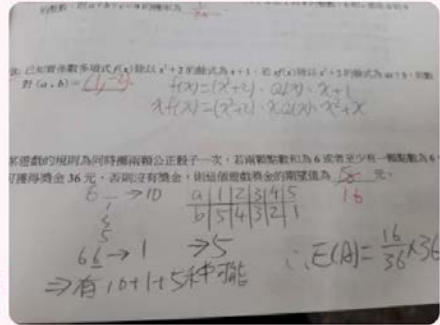 已知實係數多項式f(x)除以x²+2的餘式為x+1，若xf(x)除以x²+2的餘式為ax+b，則數
對(a,b)=(1,-2)
f(x)=(x²+2)·Q(x)·x+1
xf(x)=(x²+2)·xQ(x)·x²+x
某遊戲的規則為同時擲兩顆公正骰子一次，若兩顆點數和為6或者至少有一顆點數為6，
可獲得獎金36元，否則沒有獎金，則這個遊戲獎金的期望值為 元。
16
6 _ →10
1
5
a|1|2|3|4|5
b|5|4|3|2|1
66→1 →5
⇒有10+1+5種可能
∴E(A)=16/36×36